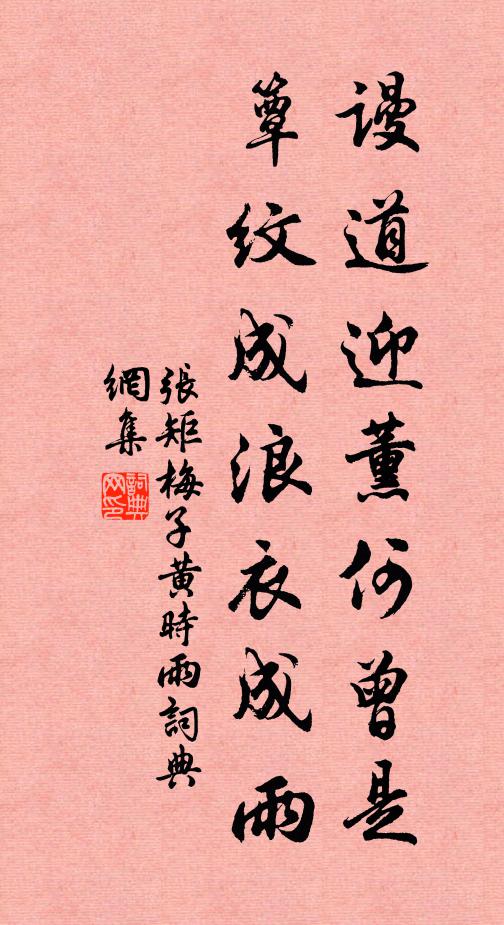 謾道迎薰何曾是
簟紋成浪衣成雨
張矩梅子黄時雨詞典
網集
詞典网印